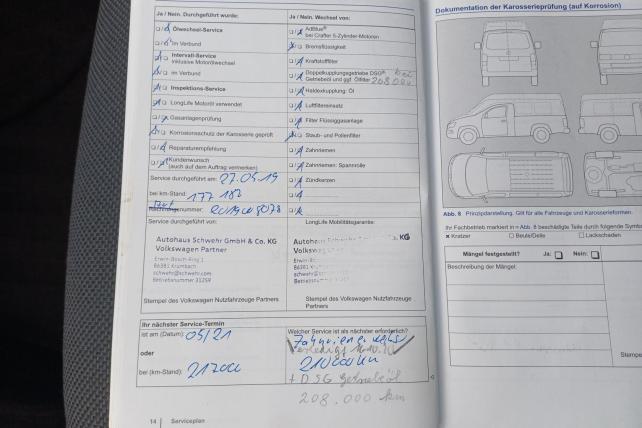 Ja / Nein. Durchgeführt wurde:
Ölwechsel-Service
im Verbund
Intervall-Service
inklusive Motorölwechsel
im Verbund
Inspektions-Service
LongLife Motoröl verwendet
Gasanlagenprüfung
Korrosionsschutz der Karosserie geprüft
Reparaturempfehlung
Kundenwunsch
(auch auf dem Auftrag vermerken)
Service durchgeführt am: 27.05.19
bei km-Stand: 177 187
Service durchgeführt von:
Autohaus Schwehr GmbH & Co. KG
Volkswagen Partner
Erwin-Bosch-Ring 1
86381 Krumbach
schwehr@schwehr.com
Betriebsnummer 31259
Stempel des Volkswagen Nutzfahrzeuge Partners
Ja / Nein. Wechsel von:
AdBlue®
bei Crafter 5-Zylinder-Motoren
Bremsflüssigkeit
Kraftstofffilter
Doppelkupplungsgetriebe DSG® bei
Getriebeöl und ggf. Ölfilter 208000
Haldexkupplung: Öl
Luftfiltereinsatz
Filter Flüssiggasanlage
Staub- und Pollenfilter
Zahnriemen
Zahnriemen: Spannrolle
Zündkerzen
LongLife Mobilitätsgarantie:
Autohaus Schwehr KG
Volkswagen
86381
Stempel des Volkswagen Nutzfahrzeuge
Partners
Ihr nächster Service-Termin
ist am (Datum): 05/21
oder
bei (km-Stand): 217000
Welcher Service ist als nächster erforderlich?
210000 km
+ DSG Getriebeöl
208.000 km
14 Serviceplan
Dokumentation der Karosserieprüfung (auf Korrosion)
Abb. 8 Prinzipdarstellung. Gilt für alle Fahrzeuge und Karosserieformen.
Ihr Fachbetrieb markiert in Abb. 8 beschädigte Teile durch folgende Symbo
x Kratzer Beule/Delle Lackschaden
Mängel festgestellt? Ja: Nein:
Beschreibung der Mängel:
Stempe